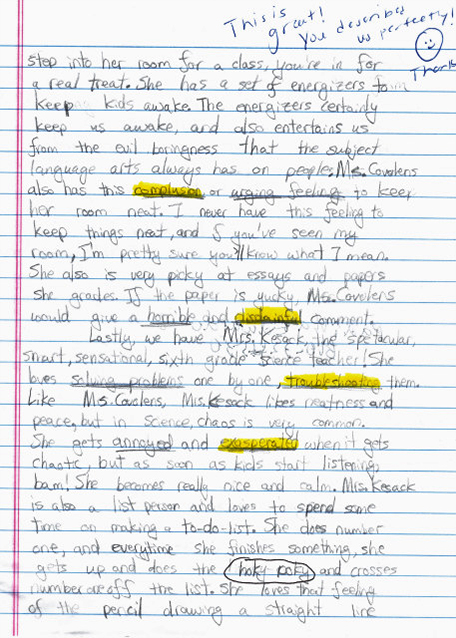 This is
great!
You described
us perfectly!
Thanks
step into her room for a class, you're in for
a real treat. She has a set of energizers to
keep kids awake. The energizers certainly
keep us awake, and also entertains us
from the evil boringness that the subject
language arts always has on people. Ms. Covalens
also has this complusion or urging feeling to keep
her room neat. I never have this feeling to
keep things neat, and if you've seen my
room, I'm pretty sure you'll know what I mean.
She also is very picky at essays and papers
she grades. If the paper is yucky, Ms. Covalens
would give a horrible and disdainful comment.
Lastly, we have Mrs. Kesack, the spectacular,
smart, sensational, sixth grade science teacher! She
loves solving problems one by one, troubleshooting them.
Like Ms. Covalens, Mrs. Kesack likes neatness and
peace, but in science, chaos is very common.
She gets annoyed and exasperated when it gets
chaotic, but as soon as kids start listening,
bam! She becomes really nice and calm. Mrs. Kesack
is also a list person and loves to spend some
time on making a to-do-list. She does number
one, and everytime she finishes something, she
gets up and does the hoky poky and crosses
number one off the list. She loves that feeling
of the pencil drawing a straight line